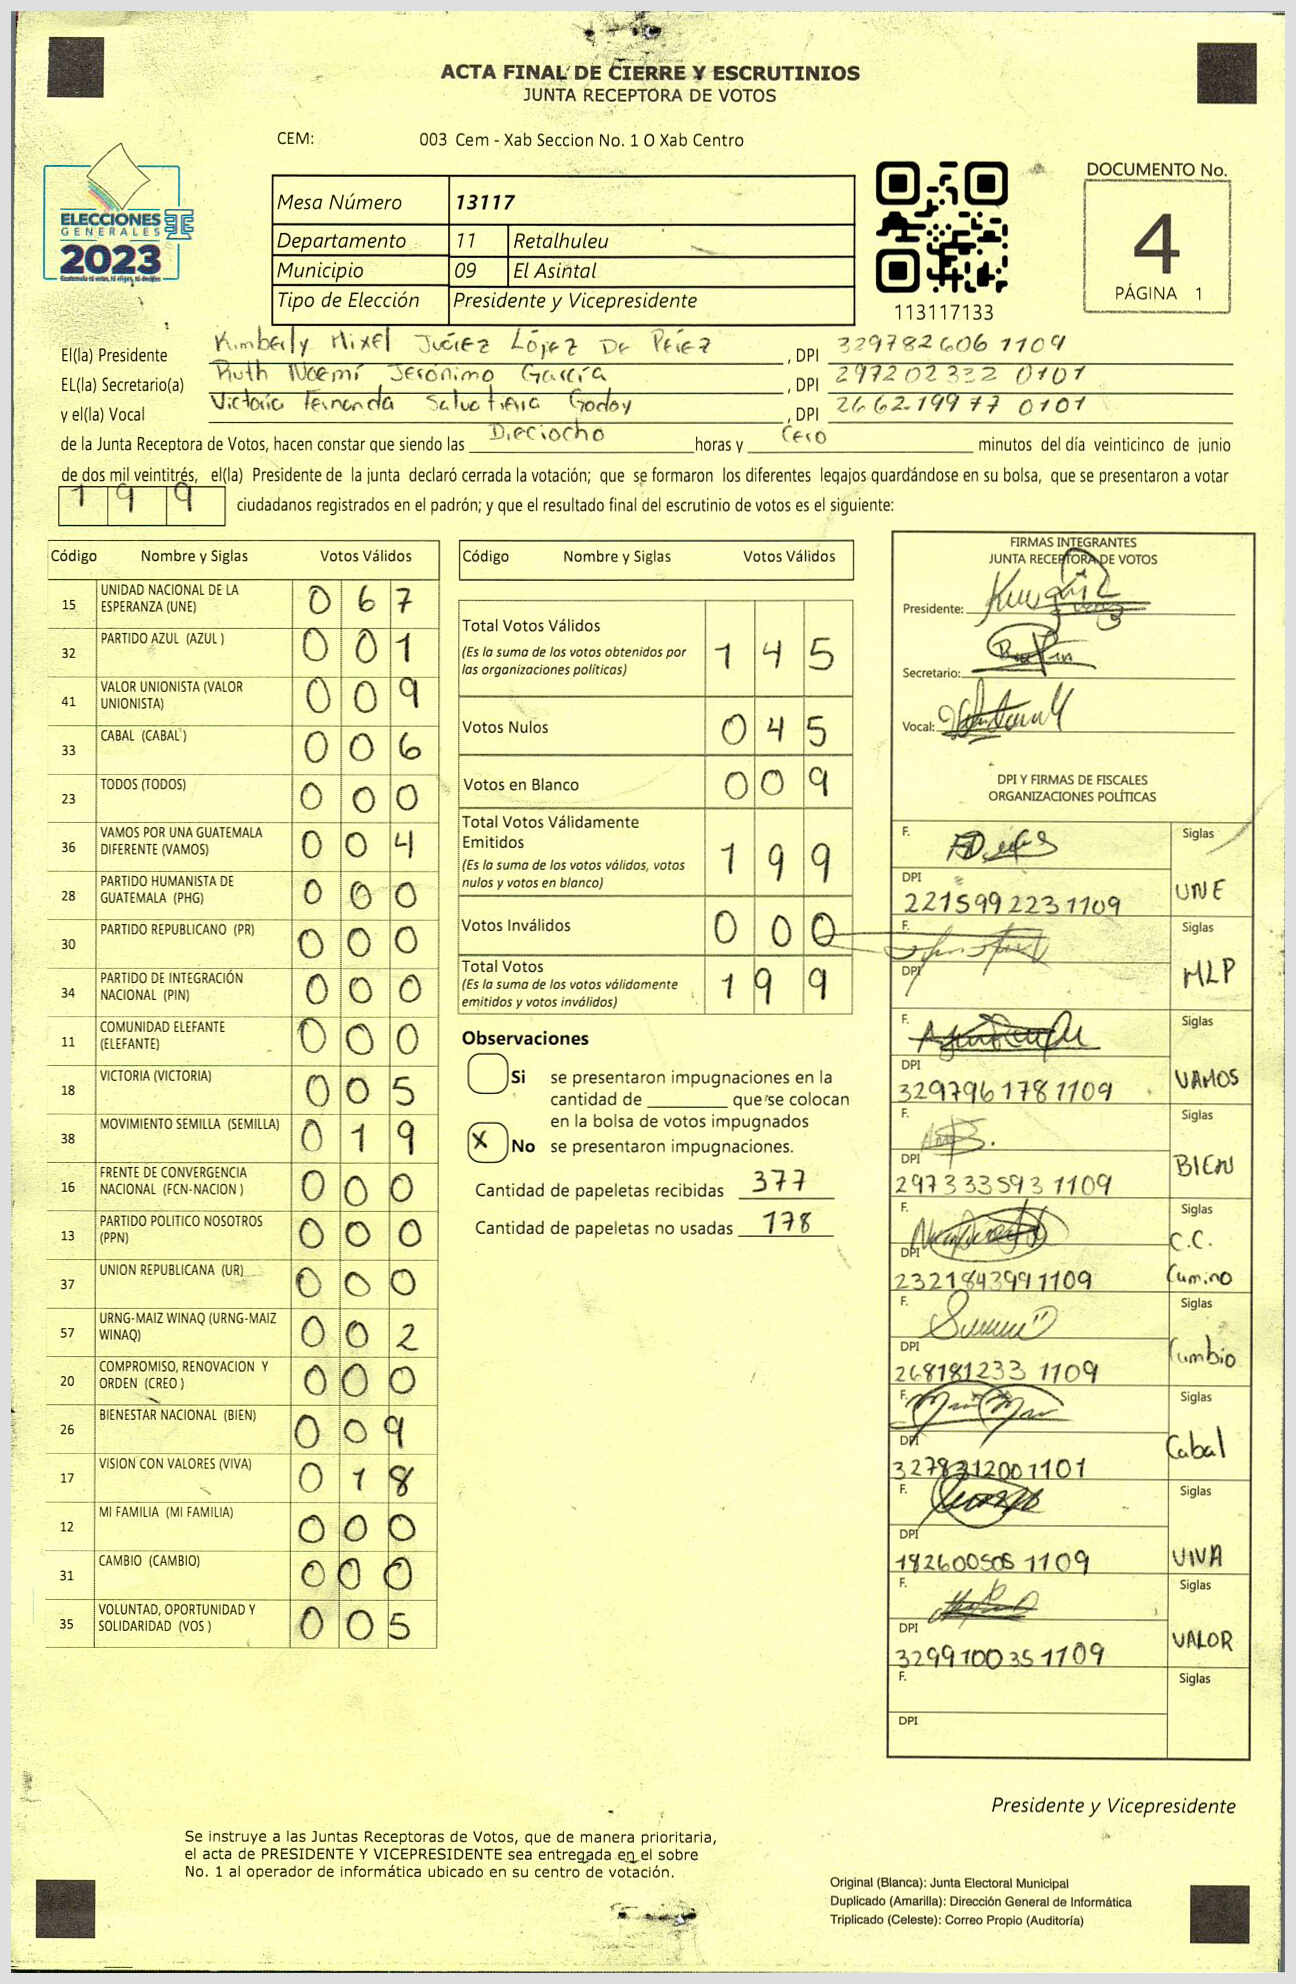 ACTA FINAL DE CIERRE Y ESCRUTINIOS
JUNTA RECEPTORA DE VOTOS
CEM: 003 Cem - Xab Seccion No. 1 O Xab Centro
ELECCIONES
GENERALES
2023
Mesa Número 13117
Departamento 11 Retalhuleu
Municipio 09 El Asintal
Tipo de Elección Presidente y Vicepresidente
113117133
DOCUMENTO No.
4
PÁGINA 1
El(la) Presidente Kimberly Mixel Juárez López De Pérez, DPI 329782606 1109
EL(la) Secretario(a) Ruth Noemí Jerónimo García, DPI 297202332 0101
y el(la) Vocal Victoria Fernanda Salvatierra Godoy, DPI 266219977 0101
de la Junta Receptora de Votos, hacen constar que siendo las Dieciocho horas y Cero minutos del día veinticinco de junio
de dos mil veintitrés, el(la) Presidente de la junta declaró cerrada la votación; que se formaron los diferentes legajos guardándose en su bolsa, que se presentaron a votar
199 ciudadanos registrados en el padrón; y que el resultado final del escrutinio de votos es el siguiente:
Código Nombre y Siglas Votos Válidos
15 UNIDAD NACIONAL DE LA ESPERANZA (UNE) 067
32 PARTIDO AZUL (AZUL ) 001
41 VALOR UNIONISTA (VALOR UNIONISTA) 009
33 CABAL (CABAL ) 006
23 TODOS (TODOS) 000
36 VAMOS POR UNA GUATEMALA DIFERENTE (VAMOS) 004
28 PARTIDO HUMANISTA DE GUATEMALA (PHG) 000
30 PARTIDO REPUBLICANO (PR) 000
34 PARTIDO DE INTEGRACIÓN NACIONAL (PIN) 000
11 COMUNIDAD ELEFANTE (ELEFANTE) 000
18 VICTORIA (VICTORIA) 005
38 MOVIMIENTO SEMILLA (SEMILLA) 019
16 FRENTE DE CONVERGENCIA NACIONAL (FCN-NACION ) 000
13 PARTIDO POLITICO NOSOTROS (PPN) 000
37 UNION REPUBLICANA (UR) 000
57 URNG-MAIZ WINAQ (URNG-MAIZ WINAQ) 002
20 COMPROMISO, RENOVACION Y ORDEN (CREO ) 000
26 BIENESTAR NACIONAL (BIEN) 009
17 VISION CON VALORES (VIVA) 018
12 MI FAMILIA (MI FAMILIA) 000
31 CAMBIO (CAMBIO) 000
35 VOLUNTAD, OPORTUNIDAD Y SOLIDARIDAD (VOS ) 005
Código Nombre y Siglas Votos Válidos
Total Votos Válidos 145
(Es la suma de los votos obtenidos por
las organizaciones políticas)
Votos Nulos 045
Votos en Blanco 009
Total Votos Válidamente
Emitidos 199
(Es la suma de los votos válidos, votos
nulos y votos en blanco)
Votos Inválidos 000
Total Votos 199
(Es la suma de los votos válidamente
emitidos y votos inválidos)
Observaciones
Si se presentaron impugnaciones en la
cantidad de ________ que se colocan
en la bolsa de votos impugnados
X No se presentaron impugnaciones.
Cantidad de papeletas recibidas 377
Cantidad de papeletas no usadas 178
FIRMAS INTEGRANTES
JUNTA RECEPTORA DE VOTOS
Presidente:
Secretario:
Vocal:
DPI Y FIRMAS DE FISCALES
ORGANIZACIONES POLÍTICAS
F. Siglas
DPI UNE
221599223 1109
F. Siglas
DPI MLP
F. Siglas
DPI VAMOS
329796178 1109
F. Siglas
DPI BIEN
297333593 1109
F. Siglas
DPI C.C.
232184399 1109 Camino
F. Siglas
DPI Cambio
268181233 1109
F. Siglas
DPI Cabal
327831200 1101
F. Siglas
DPI VIVA
182600505 1109
F. Siglas
DPI VALOR
329910035 1109
F. Siglas
DPI
Presidente y Vicepresidente
Se instruye a las Juntas Receptoras de Votos, que de manera prioritaria,
el acta de PRESIDENTE Y VICEPRESIDENTE sea entregada en el sobre
No. 1 al operador de informática ubicado en su centro de votación.
Original (Blanca): Junta Electoral Municipal
Duplicado (Amarilla): Dirección General de Informática
Triplicado (Celeste): Correo Propio (Auditoría)